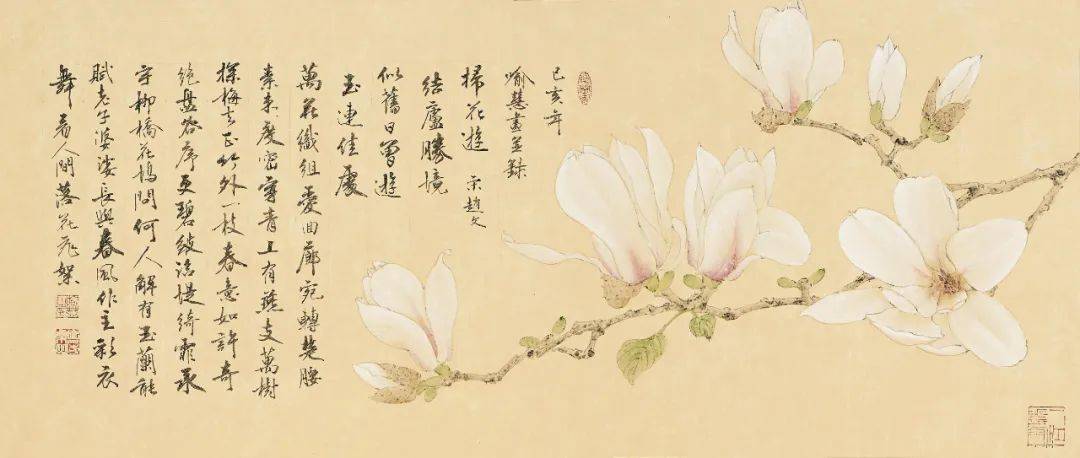 己亥年
喻慧畫並錄
掃花遊 宋趙文
結廬勝境
似舊日曾遊
玉連佳處
萬花織組愛回廊宛轉楚腰
素束度密穿青上有燕支萬樹
探梅去正竹外一枝春意如許奇
絕盤谷序更碧皴沿堤綺霏承
宇柳橋花塢問何人解有玉蘭能
賦老子婆娑長與春風作主彩衣
舞看人間落花飛絮